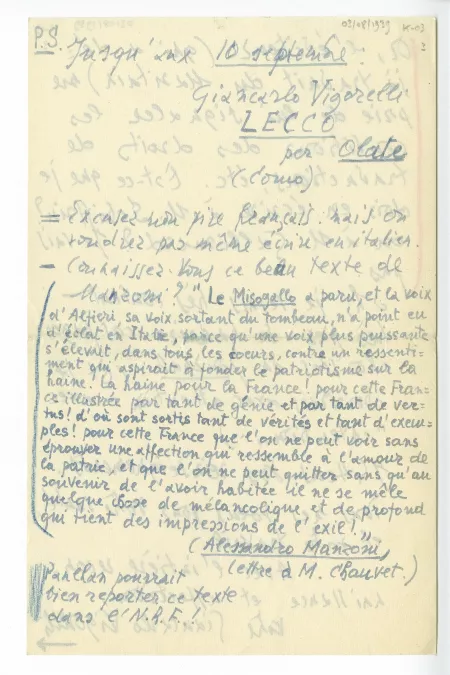 03/08/1939
P.S. Jusqu'aux 10 septembre:
Giancarlo Vigorelli
LECCO
per Olate
(Como)
= Excusez mon pire français. mais on
voudrier pas même écrire en italien.
- Connaissez-vous ce beau texte de
Manzoni? " Le Misogallo a paru, et la voix
d'Alfieri sa voix sortant du tombeau, n'a point eu
d'éclat en Italie, parce qu'une voix plus puissante
s'élevait, dans tous les coeurs, contre un ressenti=
ment qui aspirait à fonder le patriotisme sur la
haine! La haine pour la France! pour cette Fran=
ce illustrée par tant de génie et par tant de ver=
tus! d'où sont sortis tant de vérités et tant d'exem=
ples! pour cette France que l'on ne peut voir sans
éprouver une affection qui ressemble à l'amour de
la patrie, et que l'on ne peut quitter sans qu'au
souvenir de l'avoir habitée il ne se mêle
quelque chose de mélancolique et de profond
qui tient des impressions de l'exil!"
(Alessandro Manzoni,
(lettre à M. Chauvet.)
Paulhan pourrait
bien reporter ce texte
dans l'N.R.F.!